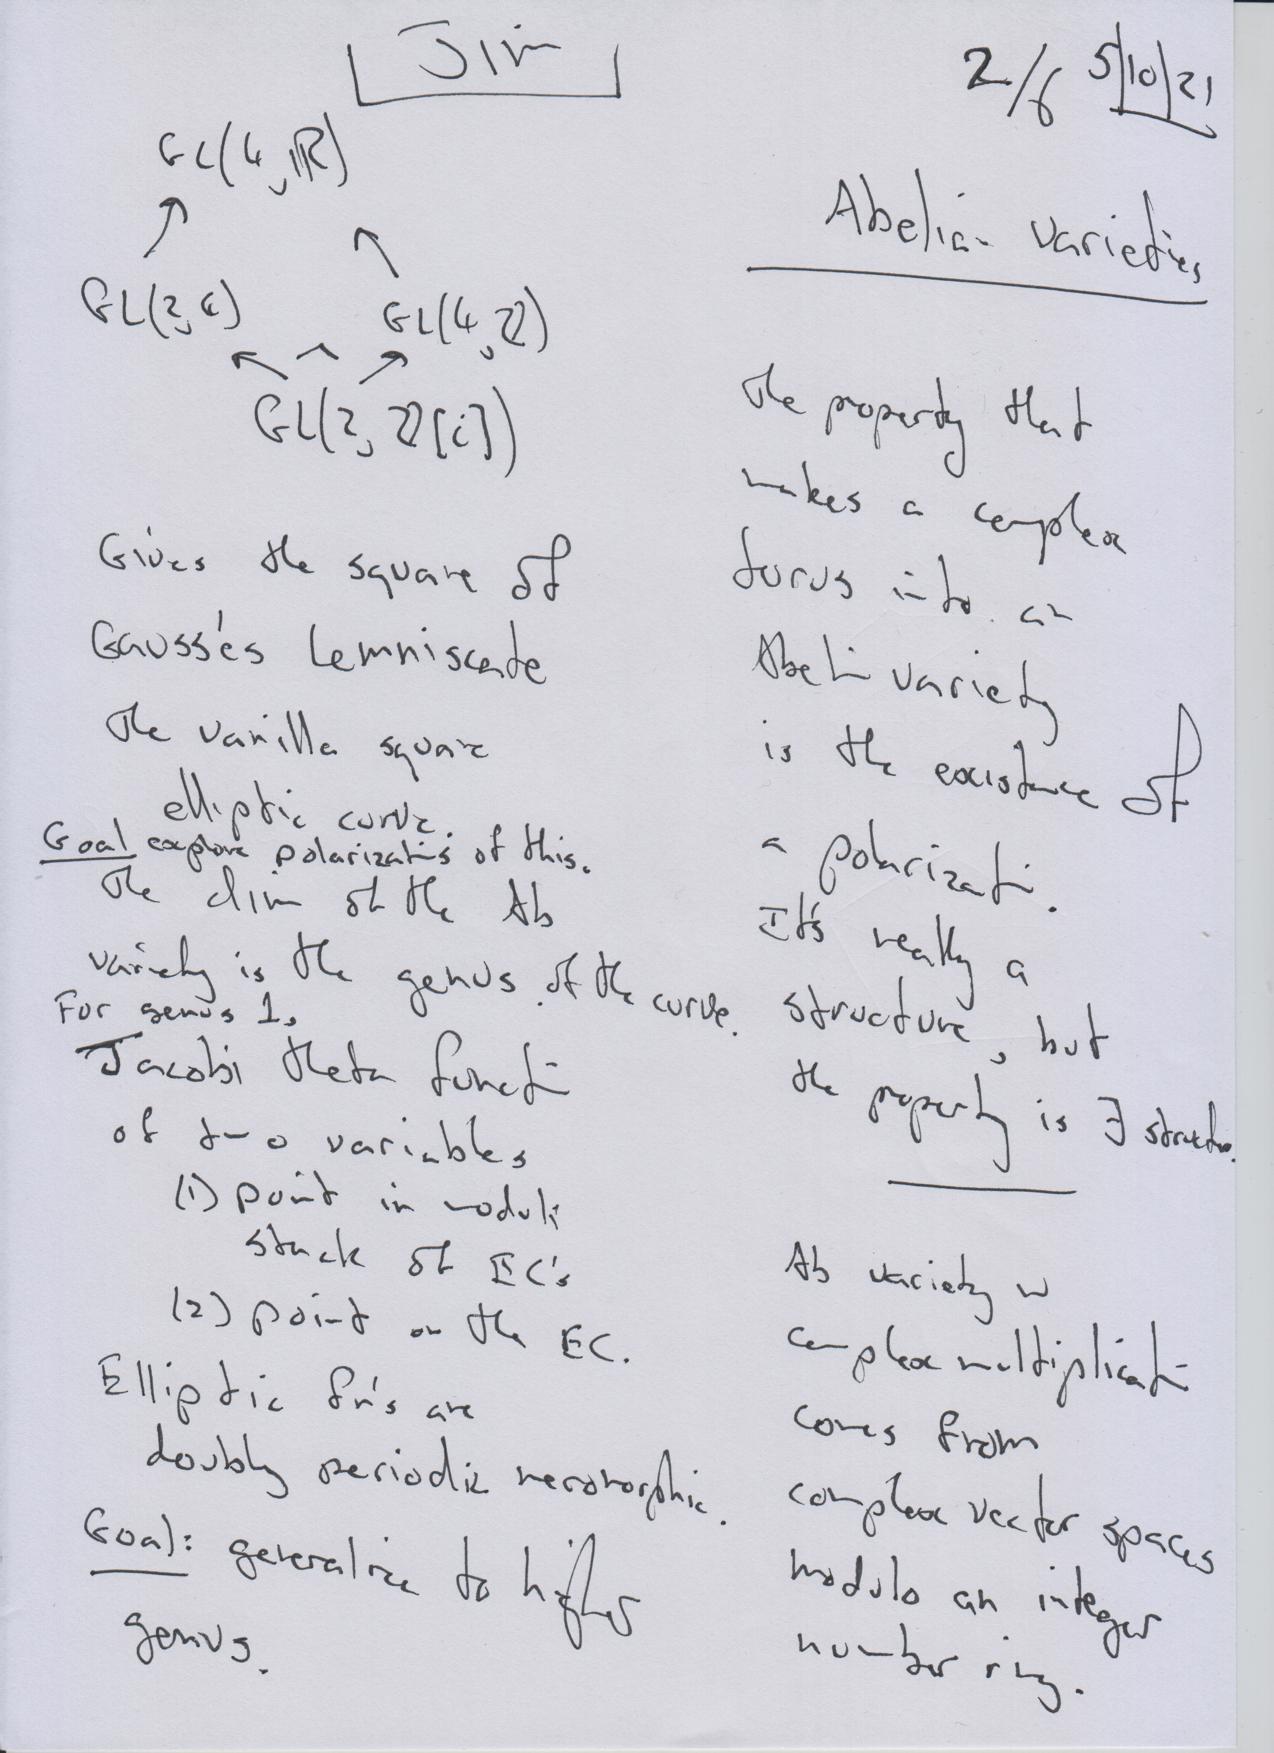 Jim
2/6 5/10/21
GL(4, ℝ)
GL(2, ℂ) GL(4, ℤ)
GL(2, ℤ[i])
Gives the square of
Gauss's Lemniscate
The vanilla square
elliptic curve.
Goal explore polarizatis of this.
The dim of the Ab
variety is the genus of the curve.
For genus 1,
Jacobi theta functi
of two variables
(1) point in moduli
stack of EC's
(2) point on the EC.
Elliptic fn's are
doubly periodic meromorphic.
Goal: generalize to higher
genus.
Abelian varieties
The property that
makes a complex
torus into an
Abeli variety
is the existence of
a polarizati.
It's really a
structure, but
the property is ∃ structure.
Ab variety w
complex multiplicati
comes from
complex vector spaces
modulo an integer
number ring.